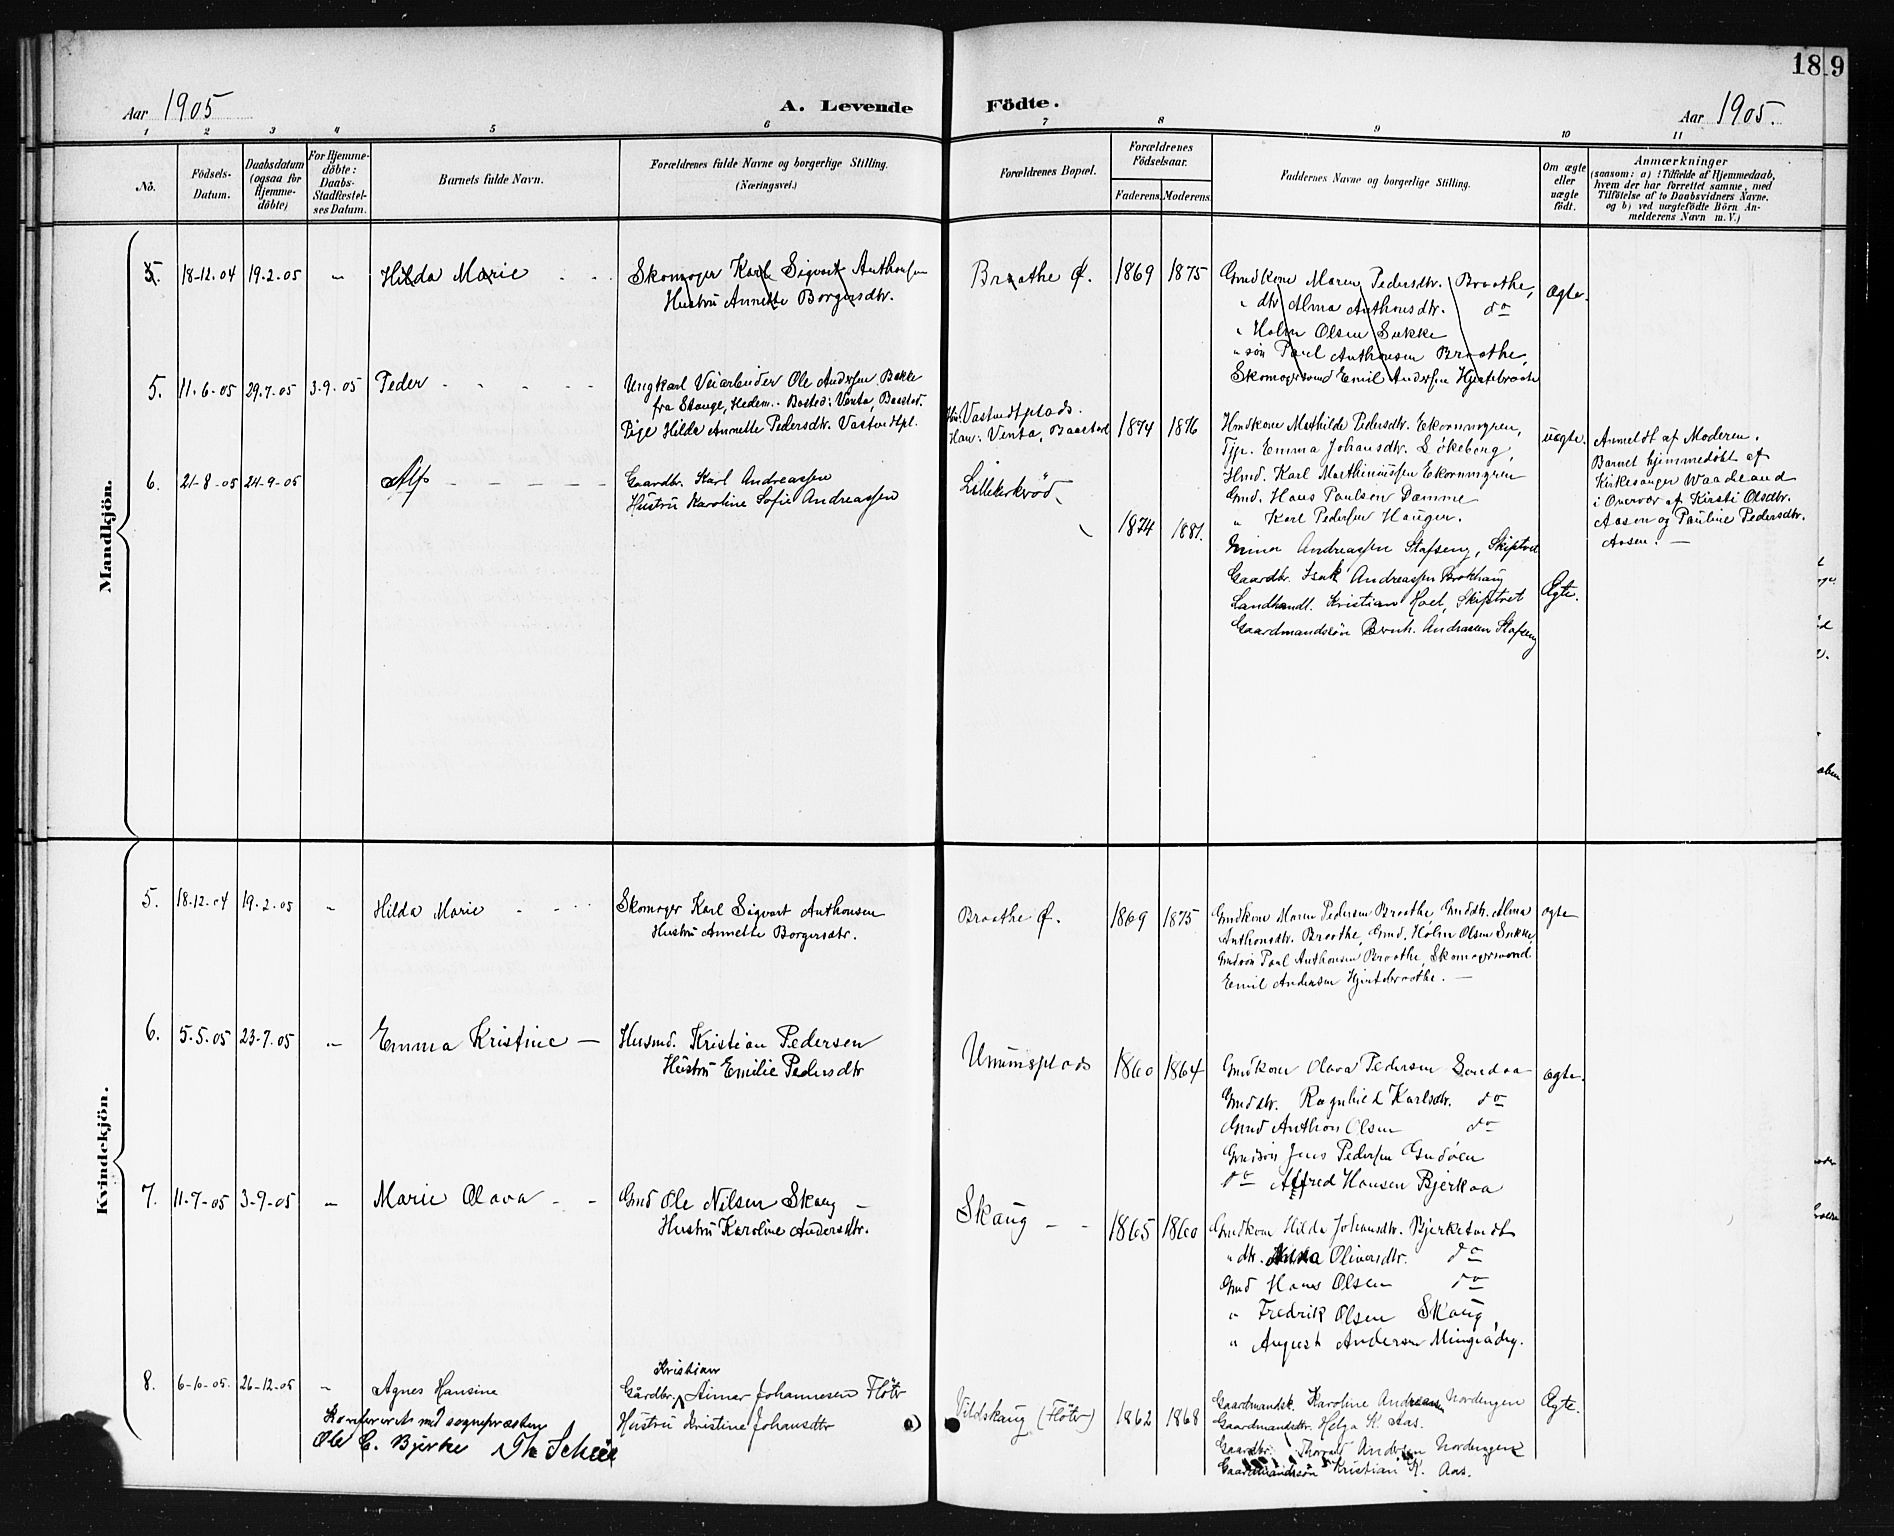 189
Aar 1905
A. Levende Födte.
Aar 1905.
1 2 3 4 5 6 7 8 9 10 11
No.
Födsels-Datum.
Daabsdatum (ogsaa for Hjemme-döbte)
For Hjemme-döbte: Daabs-Stadfæstel-ses Datum.
Barnets fulde Navn.
Forældrenes fulde Navne og borgerlige Stilling. (Næringsvei.)
Forældrenes Bopæl.
Forældrenes Födselsaar.
Faderens. Moderens.
Faddernes Navne og borgerlige Stilling.
Om ægte eller uægte födt.
Anmærkninger
(saasom: a) i Tilfælde af Hjemmedaab,
hvem der har forrettet samme, med
Tilföielse af to Daabsvidners Navne.
og b) ved uægtefödte Börn An-
melderens Navn m. V.)
Mandkjön.
5. 18-12.04 19.2.05 " Hilda Marie Skomager Karl Sigvart Anthonsen
Hustru Annette Borgersdtr.
Braathe Ø. 1869 1875
Gmdkone Maren Pedersdtr. Braathe,
" dtr Alma Anthonsdtr. do
" Holm Olsen Sukke
" søn Paul Anthonsen Braathe,
Skomagersvend Emil Andersen Hjustebraate
Ægte.
5. 11.6.05 29.7.05 3.9.05 Peder
Ungkarl Veiarbeider Ole Andersen Bakke
fra Stange, Hedem. Bosted: Venta, Baastad.
Pige Hilda Annette Pedersdtr. Vastvedtpl.
Hun: Vastvedtplads.
Han: Venta, Baastad
1874 1876
Hmdkone Mathilde Pedersdtr. Ekornmyren,
Tjp. Emma Johansdtr. S. Økeborg,
Hmd. Karl Marthinussen Ekornmyren
Gmd. Hans Paulsen Damme
" Karl Pedersen Hauger.
uægte.
Anmeldt af Moderen.
Barnet hjemmedøbt af
Kirkesanger Waadeland
i Overvær af Kirsti Olsdtr.
Aasen og Pauline Pedersdtr.
Aasen. —
6. 21-8-05 24-9-05 Alf
Gaardbr. Karl Andreassen
Hustru Karoline Sofie Andreassen
Lillekirkerød
1874 1881.
Andreassen Stafseng, Skiptvet
Gaardbr. Isak Andreassen
Landhandl. Kristian Hoel, Skiptvet
Gaardmandssøn Bernh. Andreassen Stafseng
Ægte.
Kvindekjön.
5. 18.12.04 19.2.05 " Hilda Marie
Skomager Karl Sigvart Anthonsen
Hustru Annette Borgersdtr.
Braathe Ø. 1869 1875
Gmdkone Maren Pedersen Braathe, Gmddtr. Alma
Anthonsdtr. Braathe, Gmd. Holm Olsen Sukke,
Gmdsøn Paul Anthonsen Braathe, Skomagersvend
Emil Andersen Hjustebraathe. —
ægte
6. 5.5.05 23.7.05 " Emma Kristine —
Husmd. Kristian Pedersen
Hustru Emilie Pedersdtr
1860 1864
Gmdkone Olava Pedersen Sandaa
Gmddtr. Ragnhild Karlsdtr. do
Gmd Anthon Olsen do
Gmdsøn Jens Pedersen
do Alfred Hansen Bjerkaa
ægte.
7. 11-7-05 3-9-05 " Marie Olava
Gmd Ole Nilsen Skaug —
Hustru Karoline Andersdtr.
Skaug 1865 1860
Gmdkone Hilda Johansdtr. Bjerketvedt
" dtr. Oliversdtr. do
Gmd Hans Olsen do
" Fredrik Olsen Skaug
" August Andersen
8. 6-10-05. 26-12-05 " Agnes Hansine
Kristian
Gårdbr. Aimar Johannesen Fløtr
Hustru Kristine Johansdtr
Vildskaug (Fløtr) 1862 1868
Gaardmandsk. Karoline Andreasen Nordengen
Gaardmandsdtr. Helga K. Aas.
Gaardbr. Thorvald Andersen Nordengen
Gaardmandssøn Kristian K. Aas.
Ægte.
Konfereret med sognepræsten
Ole C. Bjerke Th Scheie